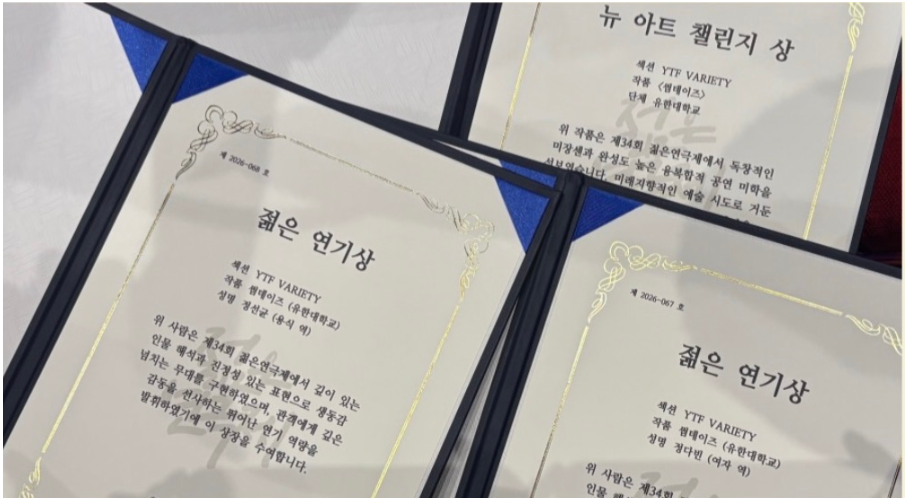 뉴 아트 챌린지 상
섹션 YTF VARIETY
작품 〈썸데이즈〉
단체 유한대학교
위 작품은 제34회 젊은연극제에서 독창적인
미장센과 완성도 높은 융복합적 공연 미학을
선보였습니다. 미래지향적인 예술 시도로 거둔
제 2026-068 호
젊은 연기상
섹션 YTF VARIETY
작품 썸데이즈 (유한대학교)
성명 정선균 (용식 역)
위 사람은 제34회 젊은연극제에서 깊이 있는
인물 해석과 진정성 있는 표현으로 생동감
넘치는 무대를 구현하였으며, 관객에게 깊은
감동을 선사하는 뛰어난 연기 역량을
발휘하였기에 이 상장을 수여합니다.
제 2026-067 호
젊은 연기상
섹션 YTF VARIETY
작품 썸데이즈 (유한대학교)
성명 정다빈 (여자 역)
위 사람은 제34회
인물